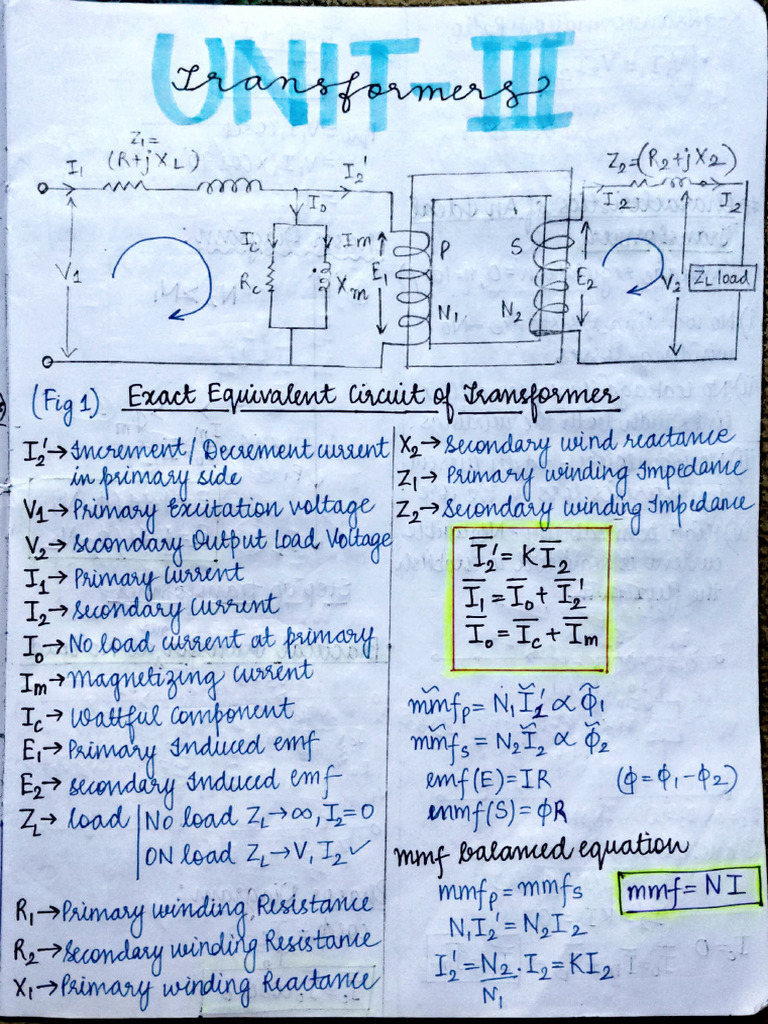 UNIT-III
Transformers
Z₁=
(R+jXL)
Z₂=(R₂+jX₂)
I₁
I₂'
I₂
I₂
I₀
Ic
Im
V₁
Rc
Xm
E₁
P
S
E₂
V₂
ZL load
N₁
N₂
(Fig 1) Exact Equivalent Circuit of Transformer
I₂'→Increment/Decrement current
in primary side
V₁→Primary Excitation voltage
V₂→Secondary Output Load Voltage
I₁→Primary Current
I₂→Secondary Current
I₀→No load current at primary
Im→Magnetizing current
Ic→Wattful Component
E₁→Primary Induced emf
E₂→secondary Induced emf
ZL→load | No load ZL→∞, I₂=0
ON load ZL→V, I₂✓
R₁→Primary winding Resistance
R₂→Secondary winding Resistance
X₁→Primary winding Reactance
X₂→Secondary wind reactance
Z₁→Primary winding Impedance
Z₂→Secondary winding Impedance
I̅₂'=KI̅₂
I̅₁=I̅₀+I̅₂'
I̅₀=I̅c+I̅m
m̆mfₚ=N₁Ĭ₂'∝ϕ̆₁
m̆mfₛ=N₂Ĭ₂∝ϕ̆₂
emf(E)=IR (ϕ=ϕ₁-ϕ₂)
mmf(S)=ϕR
mmf balanced equation
mmfₚ=mmfₛ
mmf=NI
N₁I₂'=N₂I₂
I₂'=N₂/N₁.I₂=KI₂